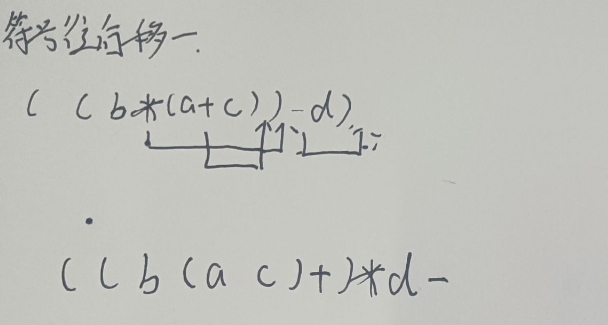 符号往后移一.
( ( b*(a+c))-d)
( ( b (a c)+)*d-